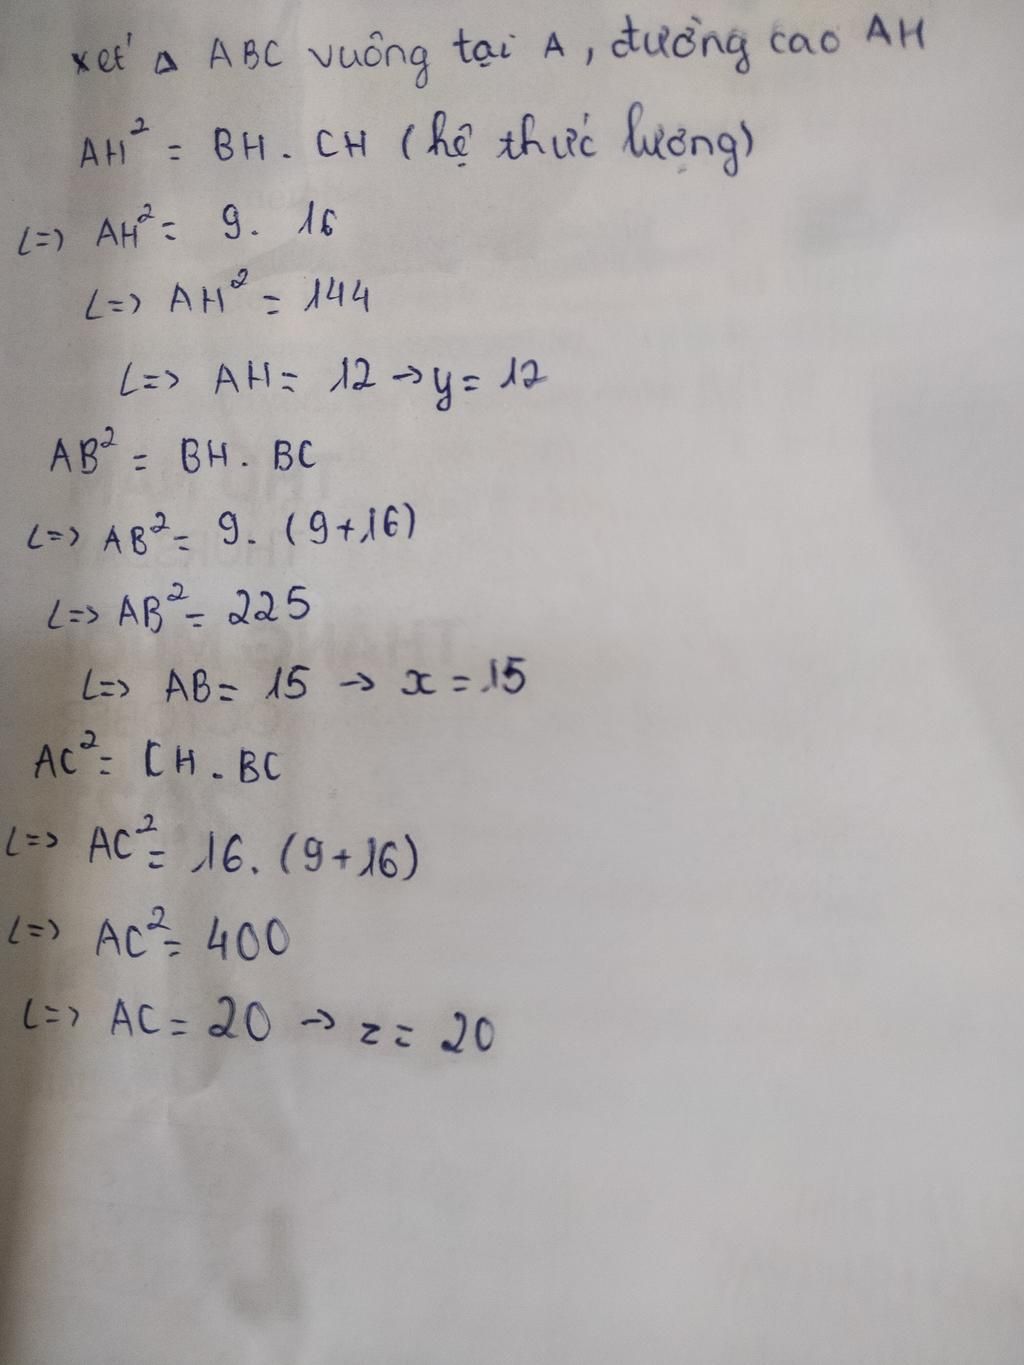 xét Δ ABC vuông tại A, đường cao AH
AH² = BH . CH (hệ thức lượng)
<=> AH² = 9 . 16
<=> AH² = 144
<=> AH = 12 → y = 12
AB² = BH . BC
<=> AB² = 9 . (9+16)
<=> AB² = 225
<=> AB = 15 → x = 15
AC² = CH . BC
<=> AC² = 16 . (9+16)
<=> AC² = 400
<=> AC = 20 → z = 20